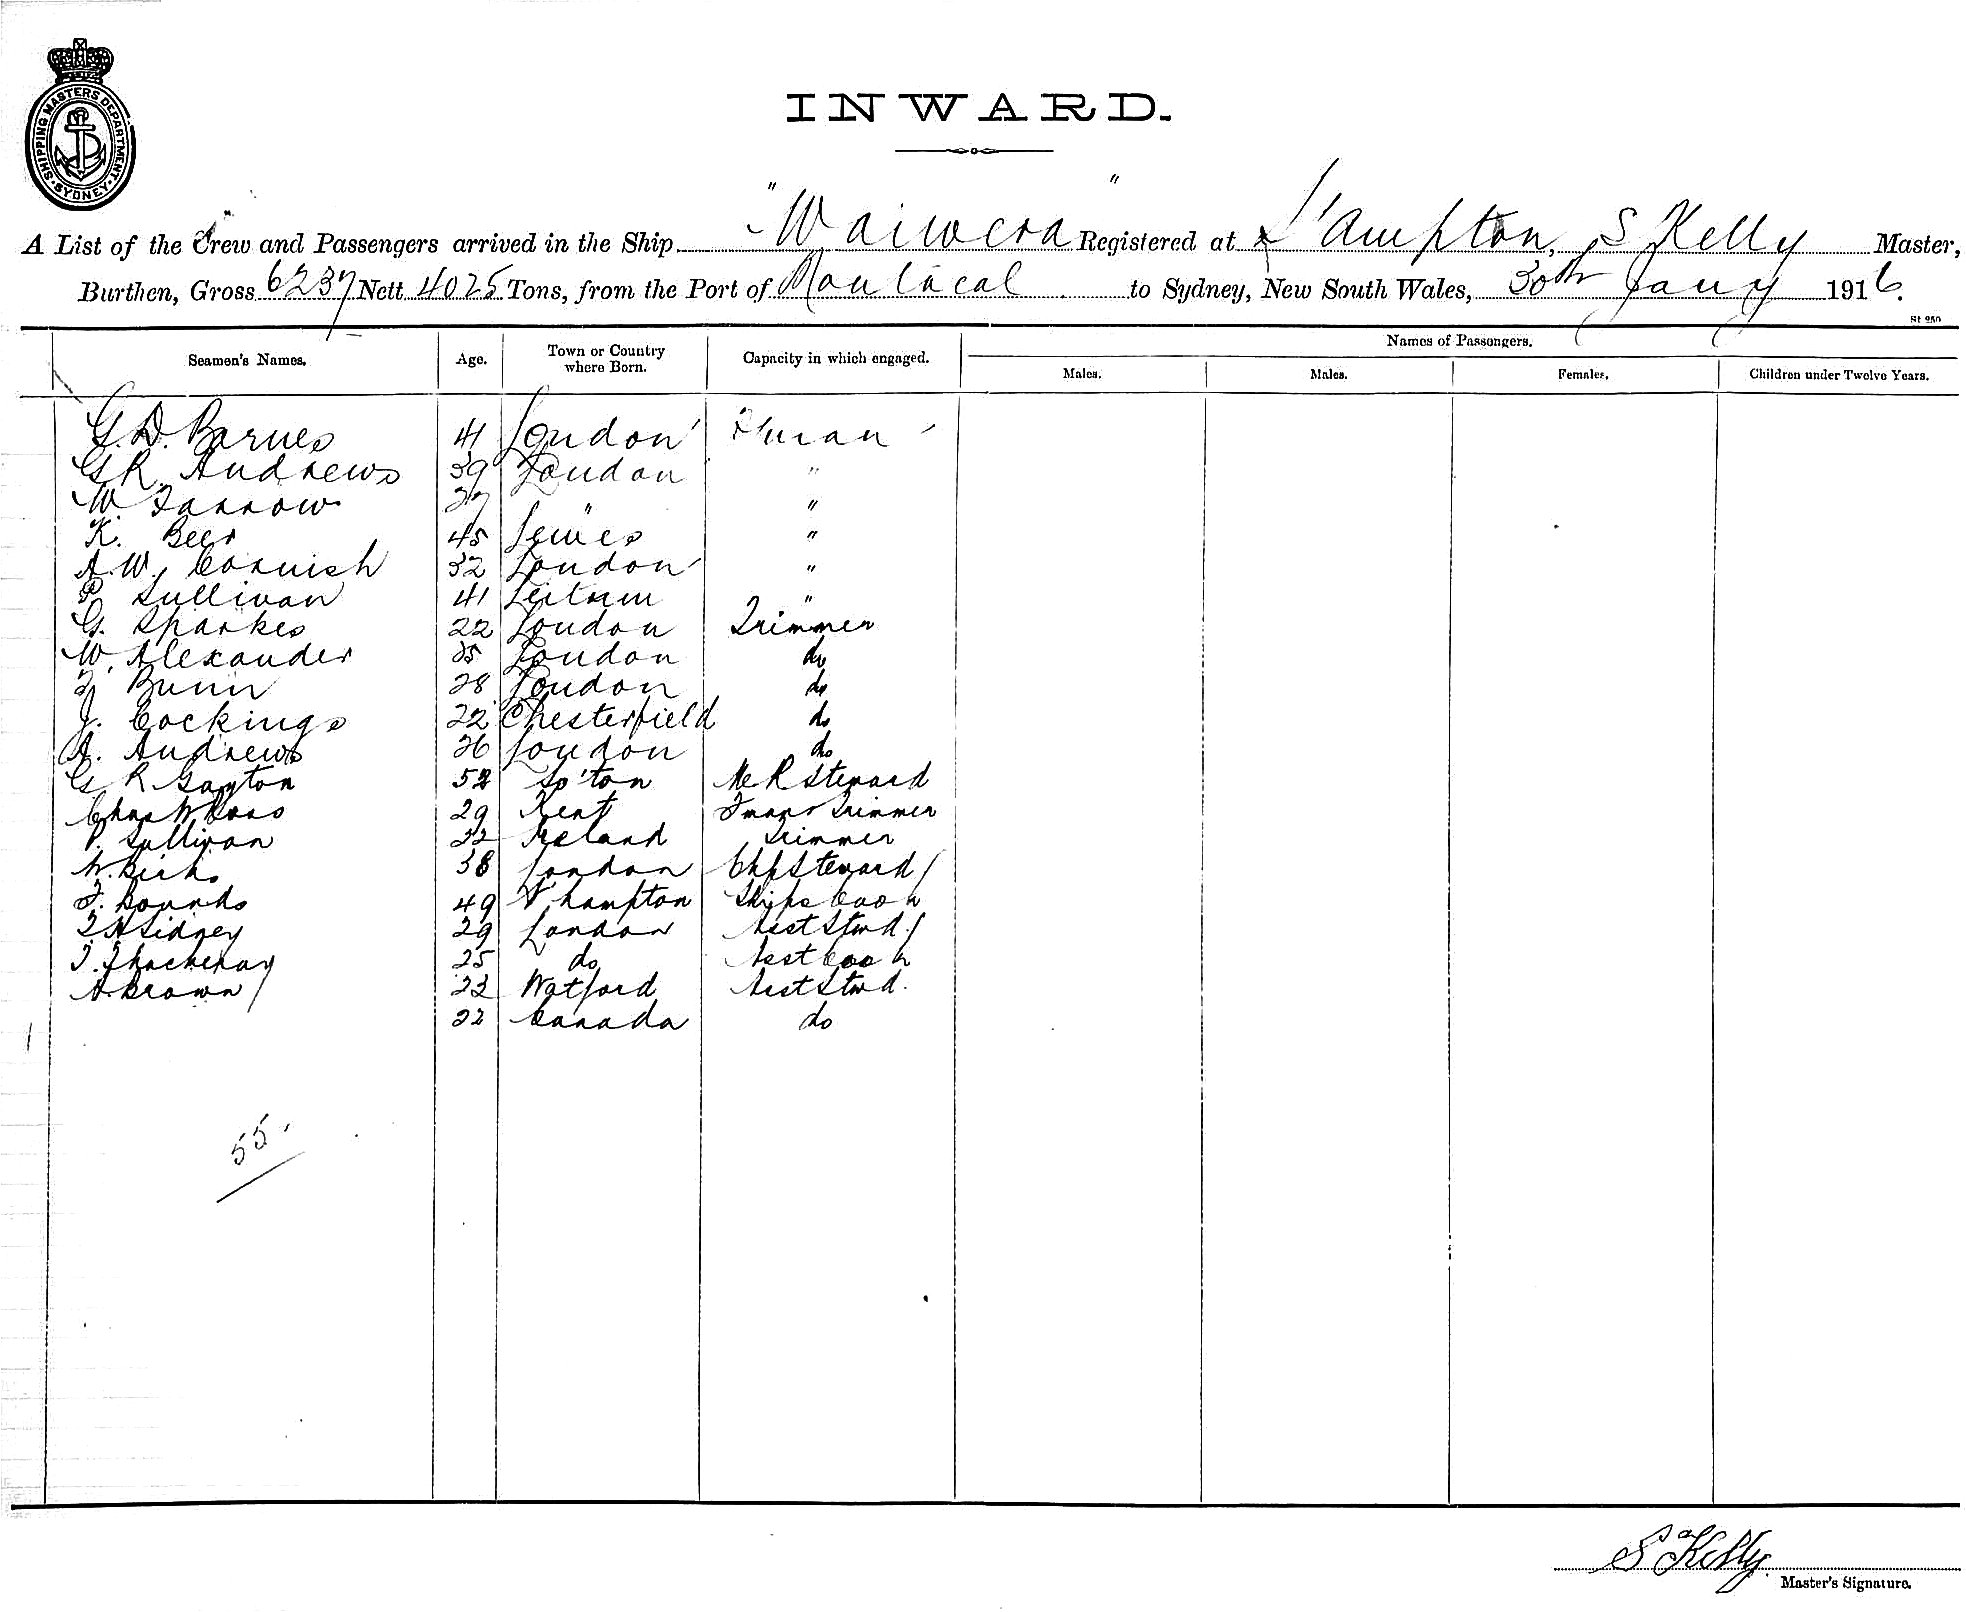 SHIPPING MASTERS DEPARTMENT. SYDNEY.
INWARD.
A List of the Crew and Passengers arrived in the Ship "Waiwera" Registered at S'Ampton, S Kelly Master,
Burthen, Gross 6237 Nett 4025 Tons, from the Port of Montreal to Sydney, New South Wales, 30th Jany 1916.
St 250
Seamen's Names. Age. Town or Country where Born. Capacity in which engaged. Names of Passengers.
Males. Males. Females. Children under Twelve Years.
G. D. Barnes 41 London Fman
G R. Andrews 39 London "
W. Farrow 27 " "
K. Beer 45 Lewes "
A. W. Cornish 32 London "
P. Sullivan 41 Leitrim "
G. Sparkes 22 London Trimmer
W. Alexander 25 London do
F. Bunn 28 London do
J. Cockings 22 Chesterfield do
A. Andrews 26 London do
G R Gayton 52 So'ton M R Steward
Chas W Ross 29 Kent Fman Trimmer
P. Sullivan 22 Ireland Trimmer
W. Birks 38 London Chf Steward
F. Bounds 49 N'hampton Ships Cook
F H Sidney 29 London Asst Stwd.
T. Thackeray 25 do Asst Cook
A. Brown 23 Watford Asst Stwd.
22 Canada do
55.
S Kelly
Master's Signature.